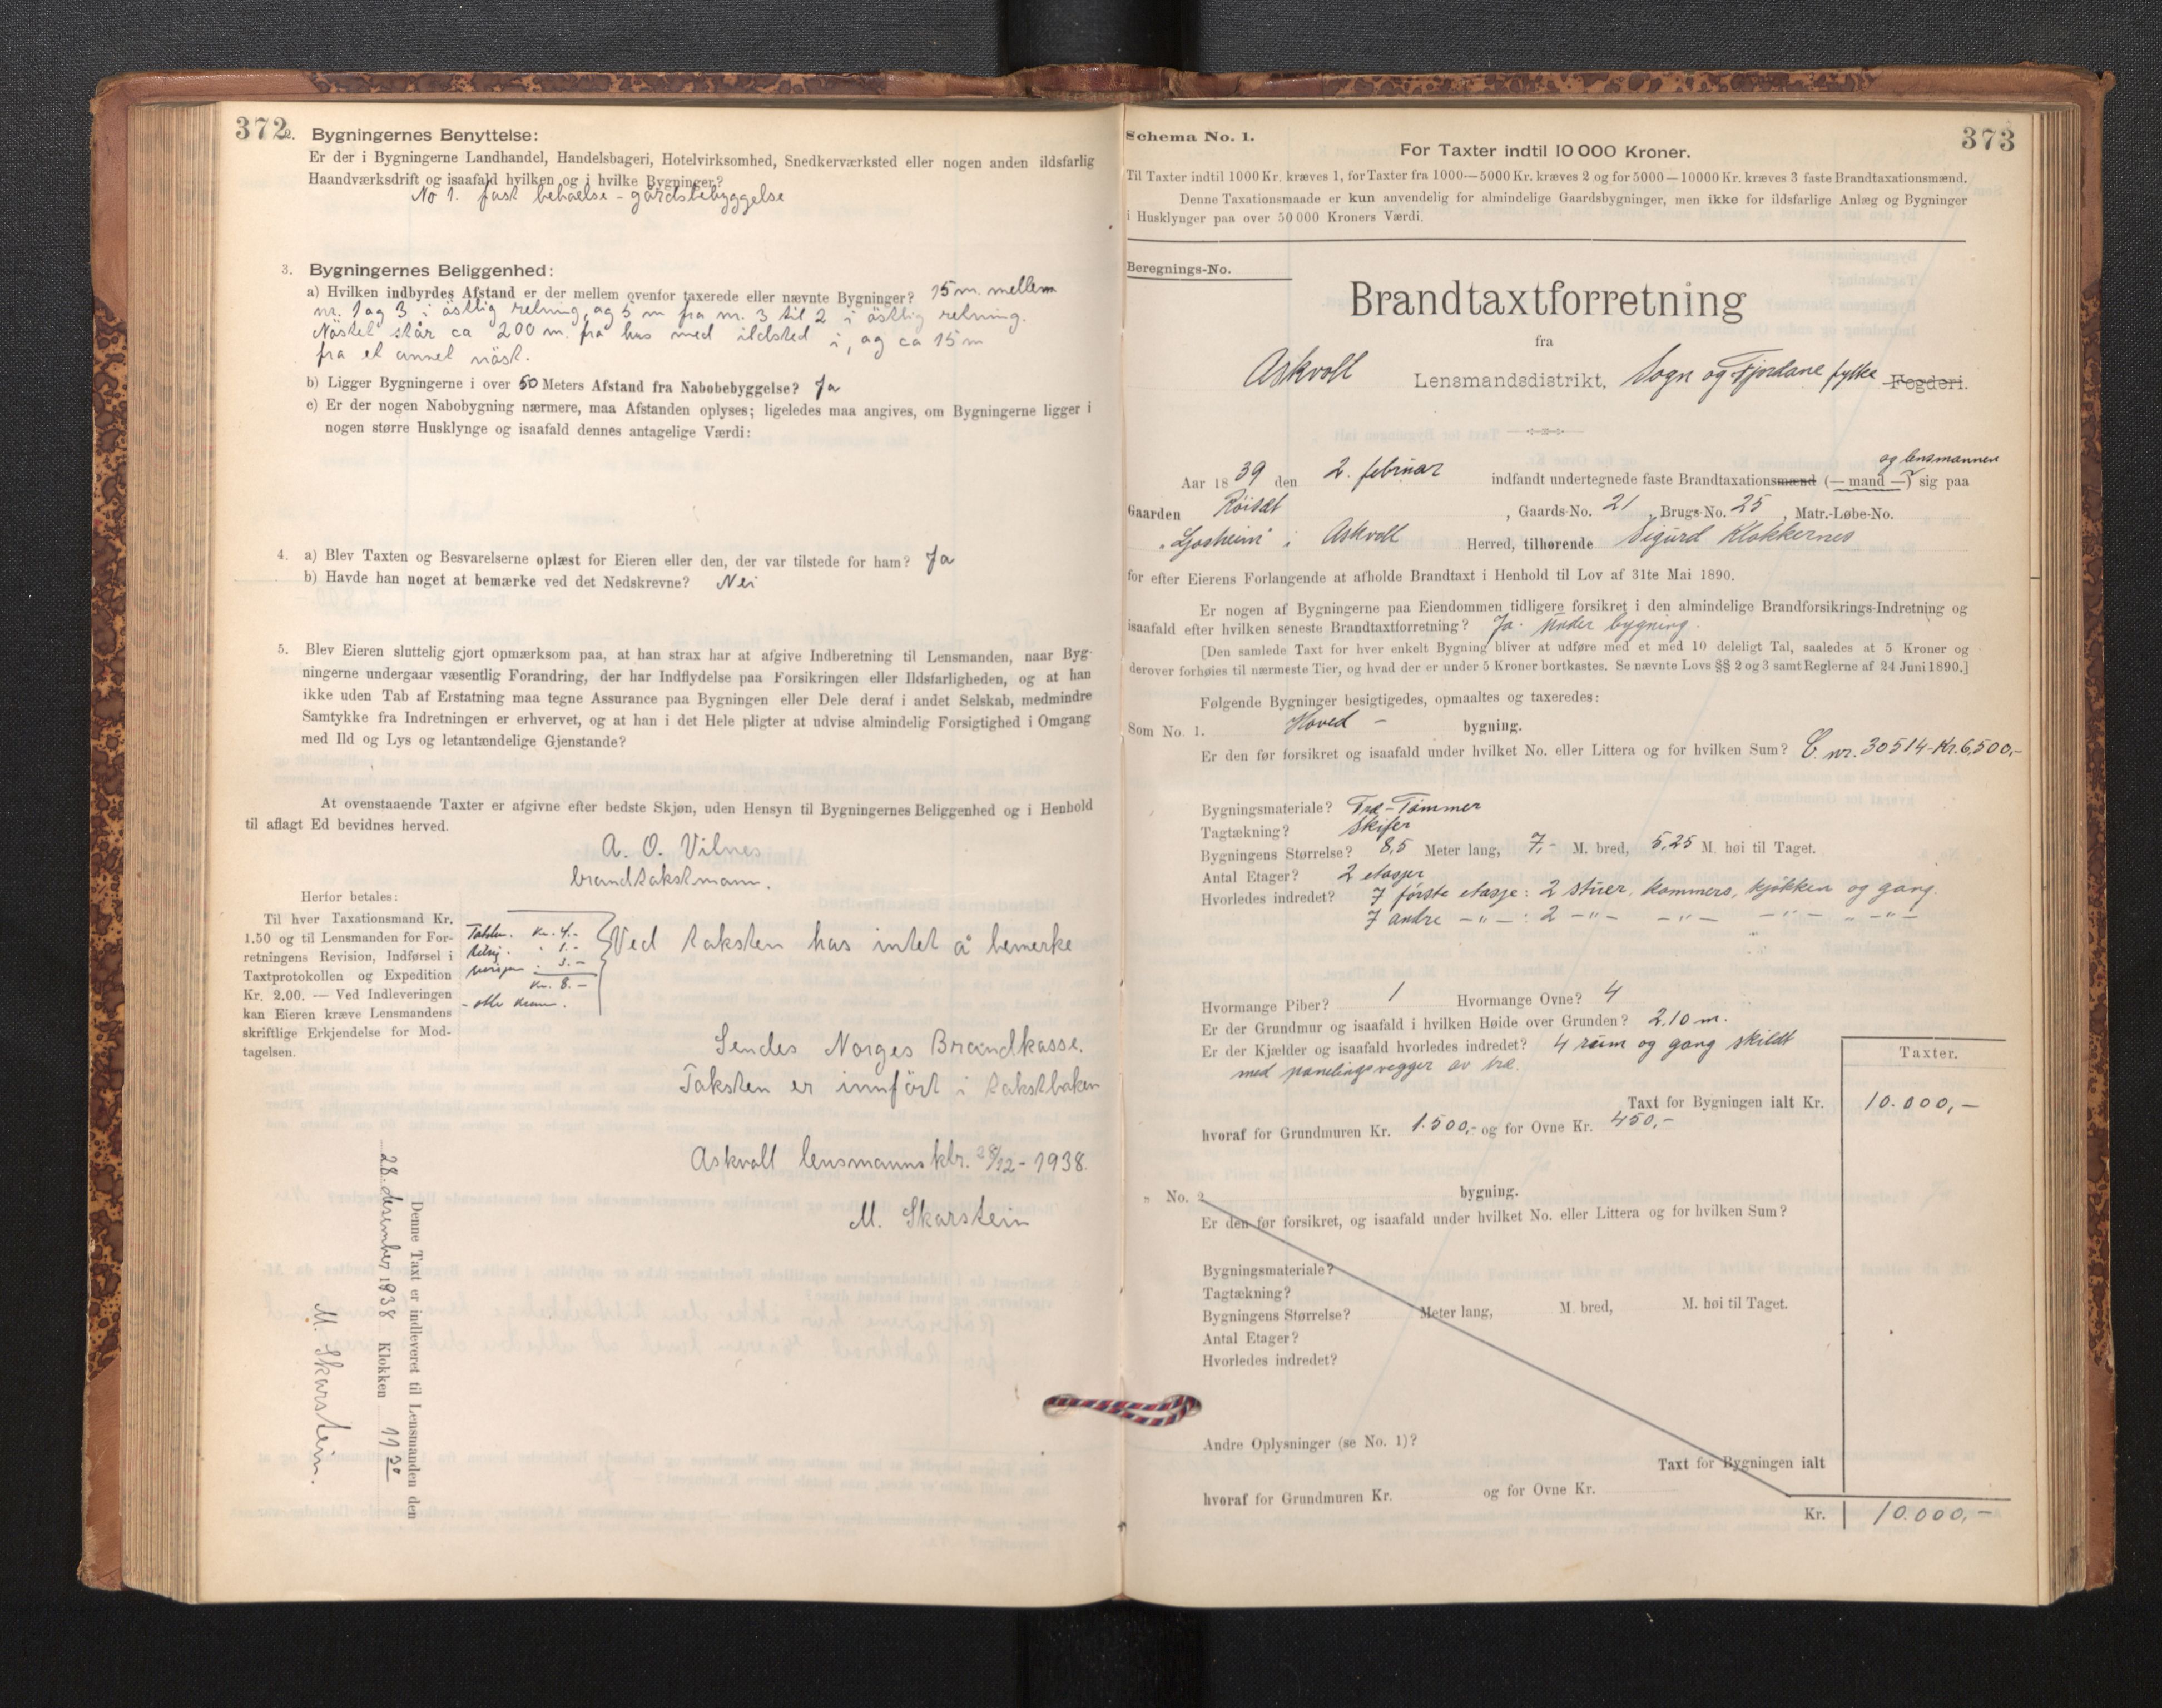 372
2. Bygningernes Benyttelse:
Er der i Bygningerne Landhandel, Handelsbageri, Hotelvirksomhed, Snedkerværksted eller nogen anden ildsfarlig
Haandværksdrift og isaafald hvilken og i hvilke Bygninger?
No 1. fast behoelse - gårdsbebyggelse
3. Bygningernes Beliggenhed:
a) Hvilken indbyrdes Afstand er der mellem ovenfor taxerede eller nævnte Bygninger? 15 m. mellem
nr. 1 og 3 i östlig retning, og 5 m fra nr. 3 til 2 i östlig retning.
Nöstet står ca 200 m. fra hus med ildsted i, og ca 15 m
fra et annet nöst.
b) Ligger Bygningerne i over 50 Meters Afstand fra Nabobebyggelse? Ja
c) Er der nogen Nabobygning nærmere, maa Afstanden oplyses; ligeledes maa angives, om Bygningerne ligger i
nogen større Husklynge og isaafald dennes antagelige Værdi:
4. a) Blev Taxten og Besvarelserne oplæst for Eieren eller den, der var tilstede for ham? Ja
b) Havde han noget at bemærke ved det Nedskrevne? Nei
5. Blev Eieren sluttelig gjort opmærksom paa, at han strax har at afgive Indberetning til Lensmanden, naar Byg-
ningerne undergaar væsentlig Forandring, der har Indflydelse paa Forsikringen eller Ildsfarligheden, og at han
ikke uden Tab af Erstatning maa tegne Assurance paa Bygningen eller Dele deraf i andet Selskab, medmindre
Samtykke fra Indretningen er erhvervet, og at han i det Hele pligter at udvise almindelig Forsigtighed i Omgang
med Ild og Lys og letantændelige Gjenstande?
At ovenstaaende Taxter er afgivne efter bedste Skjøn, uden Hensyn til Bygningernes Beliggenhed og i Henhold
til aflagt Ed bevidnes herved.
A. O. Vilnes
brandtakstmann.
Herfor betales:
Til hver Taxationsmand Kr.
1.50 og til Lensmanden for For-
retningens Revision, Indførsel i
Taxtprotokollen og Expedition
Kr. 2.00. — Ved Indleveringen
kan Eieren kræve Lensmandens
skriftlige Erkjendelse for Mod-
tagelsen.
Kr. 4.-
" 1.-
" 3.-
Kr. 8.-
- otte kroner.
Ved taksten has intet å bemerke
Sendes Norges Brandkasse.
Taksten er innfört i takstboken
Askvoll lensmannsktr. 28/12 - 1938.
M. Skarstein
Denne Taxt er indleveret til Lensmanden den
28. desember 1938 Klokken 11 30
M. Skarstein.
373
Schema No. 1.
For Taxter indtil 10 000 Kroner.
Til Taxter indtil 1000 Kr. kræves 1, for Taxter fra 1000—5000 Kr. kræves 2 og for 5000—10000 Kr. kræves 3 faste Brandtaxationsmænd.
Denne Taxationsmaade er kun anvendelig for almindelige Gaardsbygninger, men ikke for ildsfarlige Anlæg og Bygninger
i Husklynger paa over 50 000 Kroners Værdi.
Beregnings-No.
Brandtaxtforretning
fra
Askvoll Lensmandsdistrikt, Sogn og Fjordane fylke Fogderi.
og lensmannen
Aar 1839 den 2. februar indfandt undertegnede faste Brandtaxationsmænd (— mand —) sig paa
Gaarden Röiset, Gaards-No. 21, Brugs-No. 25, Matr.-Løbe-No.
"Ljosheim" i Askvoll Herred, tilhørende Sigurd Klokkernes
for efter Eierens Forlangende at afholde Brandtaxt i Henhold til Lov af 31te Mai 1890.
Er nogen af Bygningerne paa Eiendommen tidligere forsikret i den almindelige Brandforsikrings-Indretning og
isaafald efter hvilken seneste Brandtaxtforretning? Ja. Under bygning.
[Den samlede Taxt for hver enkelt Bygning bliver at udføre med et med 10 deleligt Tal, saaledes at 5 Kroner og
derover forhøies til nærmeste Tier, og hvad der er under 5 Kroner bortkastes. Se nævnte Lovs §§ 2 og 3 samt Reglerne af 24 Juni 1890.]
Følgende Bygninger besigtigedes, opmaaltes og taxeredes:
Som No. 1. Hoved - bygning.
Er den før forsikret og isaafald under hvilket No. eller Littera og for hvilken Sum? C. nr. 30514 - Kr. 6,500,-
Bygningsmateriale? Tre - Tömmer
Tagtækning? Skifer
Bygningens Størrelse? 8,5 Meter lang, 7,- M. bred, 5,25 M. høi til Taget.
Antal Etager? 2 etasjer
Hvorledes indredet? I förste etasje: 2 stuer, kammers, kjökken og gang.
I andre -"- : 2 -"- -"- -"- " -"-
Hvormange Piber? 1 Hvormange Ovne? 4
Er der Grundmur og isaafald i hvilken Høide over Grunden? 2,10 m.
Er der Kjælder og isaafald hvorledes indredet? 4 rum og gang skildt
med panelingsvegger av tre.
Taxter.
Taxt for Bygningen ialt Kr. 10.000,-
hvoraf for Grundmuren Kr. 1.500,- og for Ovne Kr. 450,-
" No. 2 bygning.
Er den før forsikret, og isaafald under hvilket No. eller Littera og for hvilken Sum?
Bygningsmateriale?
Tagtækning?
Bygningens Størrelse? Meter lang, M. bred, M. høi til Taget.
Antal Etager?
Hvorledes indredet?
Andre Oplysninger (se No. 1)?
Taxt for Bygningen ialt
hvoraf for Grundmuren Kr. og for Ovne Kr.
Kr. 10.000,-